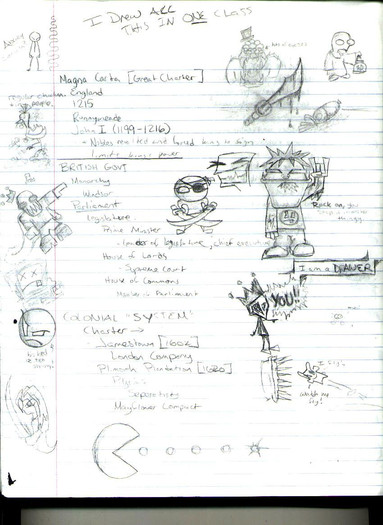 I Drew ALL
This IN ONE Class
Magna Carta [Great Charter]
England
1215
Runnymeade
John I (1199-1216)
- Nobles revolted and forced king to sign
limits kings power
BRITISH GOVT
Monarchy
Windsor
Parliament
Legislature
Prime Minister
- Leader of legislature, chief executive
House of Lords
- Supreme Court
House of Commons
Rock on,
I am a DRAWER
YOU!!
COLONIAL "SYSTEM"
Charter →
Jamestown [1602]
London Company
Plymoth Plantation [1620]
Pilgrims
Separatists
Mayflower Compact